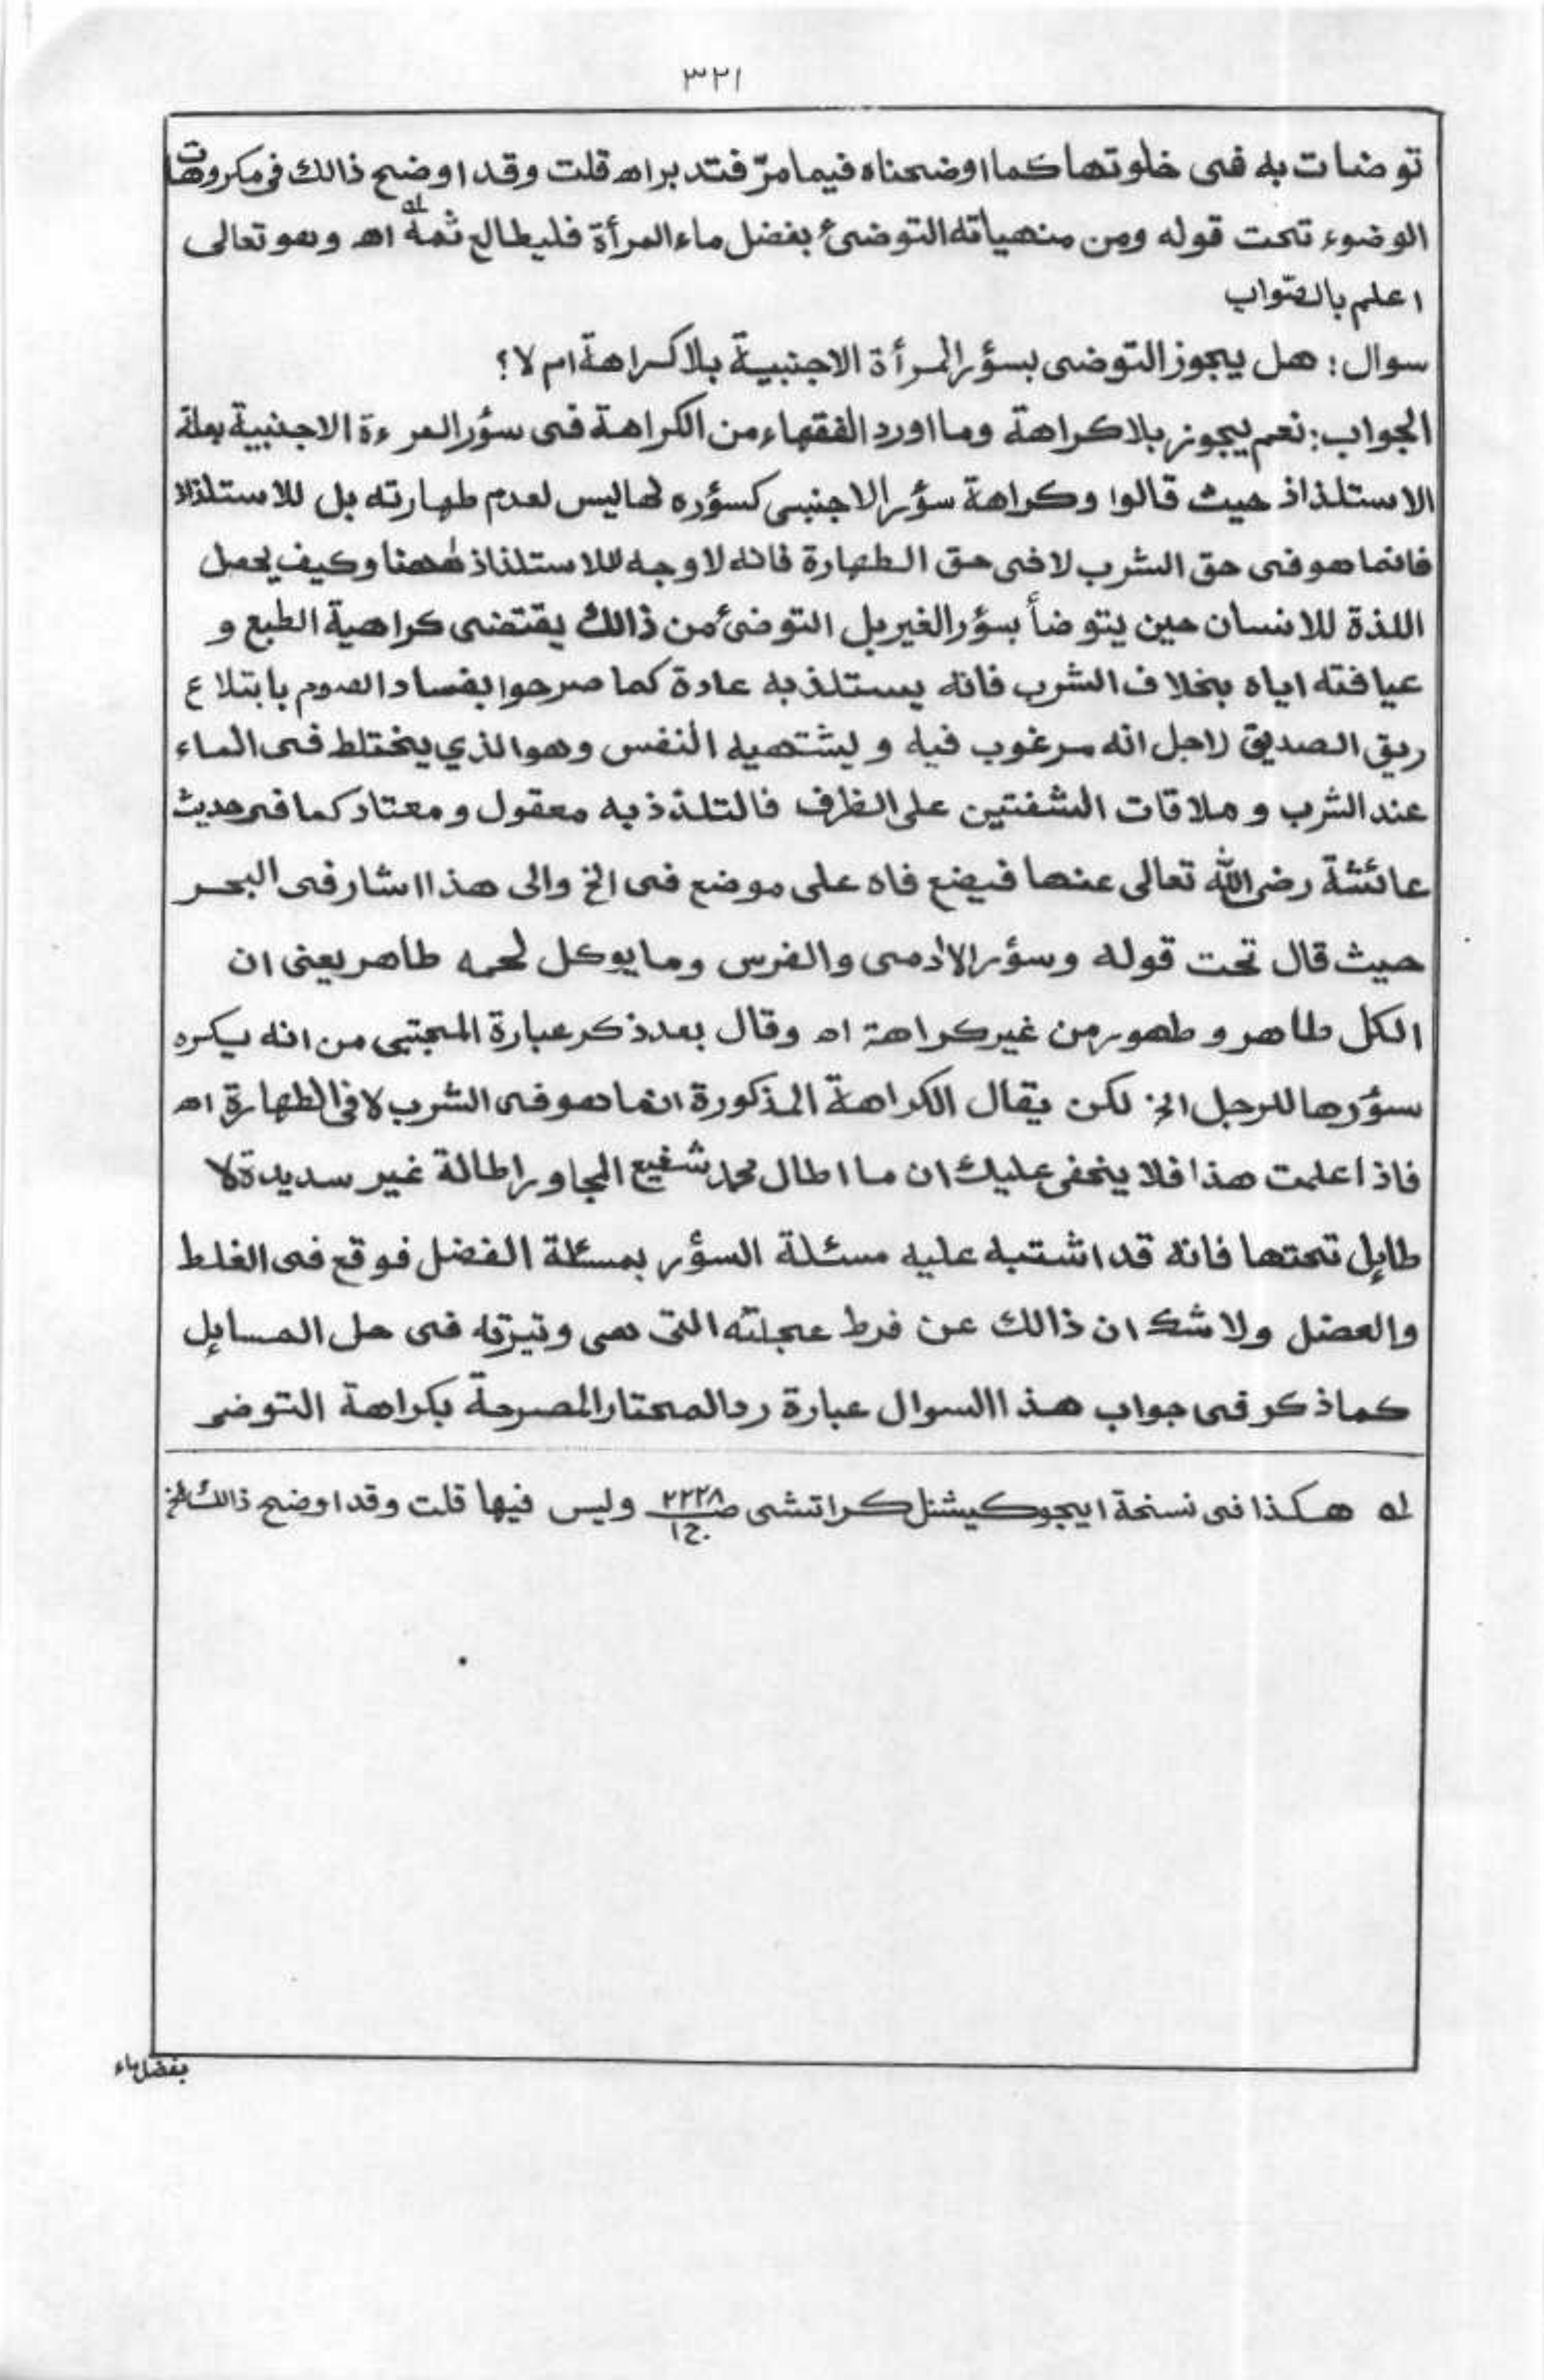 ٣٢١
توضات به فى خلوتها كما اوضحناه فيما مرّ فتدبر اه قلت وقد اوضح ذالك فى مكروهات
الوضوء تحت قوله ومن منهياته التوضئ بفضل ماء المرأة فليطالع ثمه له اه وهو تعالى
اعلم بالصّواب
سوال : هل يجوز التوضى بسؤر المرأة الاجنبية بلا كراهة ام لا؟
الجواب: نعم يجوز بلا كراهة وما اورد الفقهاء من الكراهة فى سؤر المرءة الاجنبية بعلة
الاستلذاذ حيث قالوا وكراهة سؤر الاجنبى كسؤره لها ليس لعدم طهارته بل للاستلذاذ
فانما هو فى حق الشرب لا فى حق الطهارة فانه لا وجه للاستلذاذ ههنا وكيف يحصل
اللذة للانسان حين يتوضأ بسؤر الغير بل التوضئ من ذالك يقتضى كراهية الطبع و
عيافته اياه بخلاف الشرب فانه يستلذ به عادة كما صرحوا بفساد الصوم بابتلاع
ريق الصديق لاجل انه مرغوب فيه و يشتهيه النفس وهو الذي يختلط فى الماء
عند الشرب و ملاقات الشفتين على الظرف فالتلذذ به معقول و معتاد كما فى حديث
عائشة رضى الله تعالى عنها فيضع فاه على موضع فى الخ والى هذا اشار فى البحر
حيث قال تحت قوله وسؤر الادمى والفرس وما يوكل لحمه طاهر يعنى ان
الكل طاهر و طهور من غير كراهة اه وقال بعد ذكر عبارة المجتبى من انه يكره
سؤرها للرجل الخ لكن يقال الكراهة المذكورة انما هو فى الشرب لا فى الطهارة اه
فاذا علمت هذا فلا ينخفى عليك ان ما اطال محمد شفيع المجاور اطالة غير سديدة لا
طايل تحتها فانه قد اشتبه عليه مسئلة السؤر بمسئلة الفضل فوقع فى الغلط
والعضل ولا شك ان ذالك عن فرط عجلته التى هى وتيرته فى حل المسايل
كما ذكر فى جواب هذا السوال عبارة رد المحتار المصرحة بكراهة التوضى
له هكذا فى نسخة ايجوكيشنل كراتشى ص٢٢٢٨ ج١ وليس فيها قلت وقد اوضح ذالك الخ
بفضل ماء